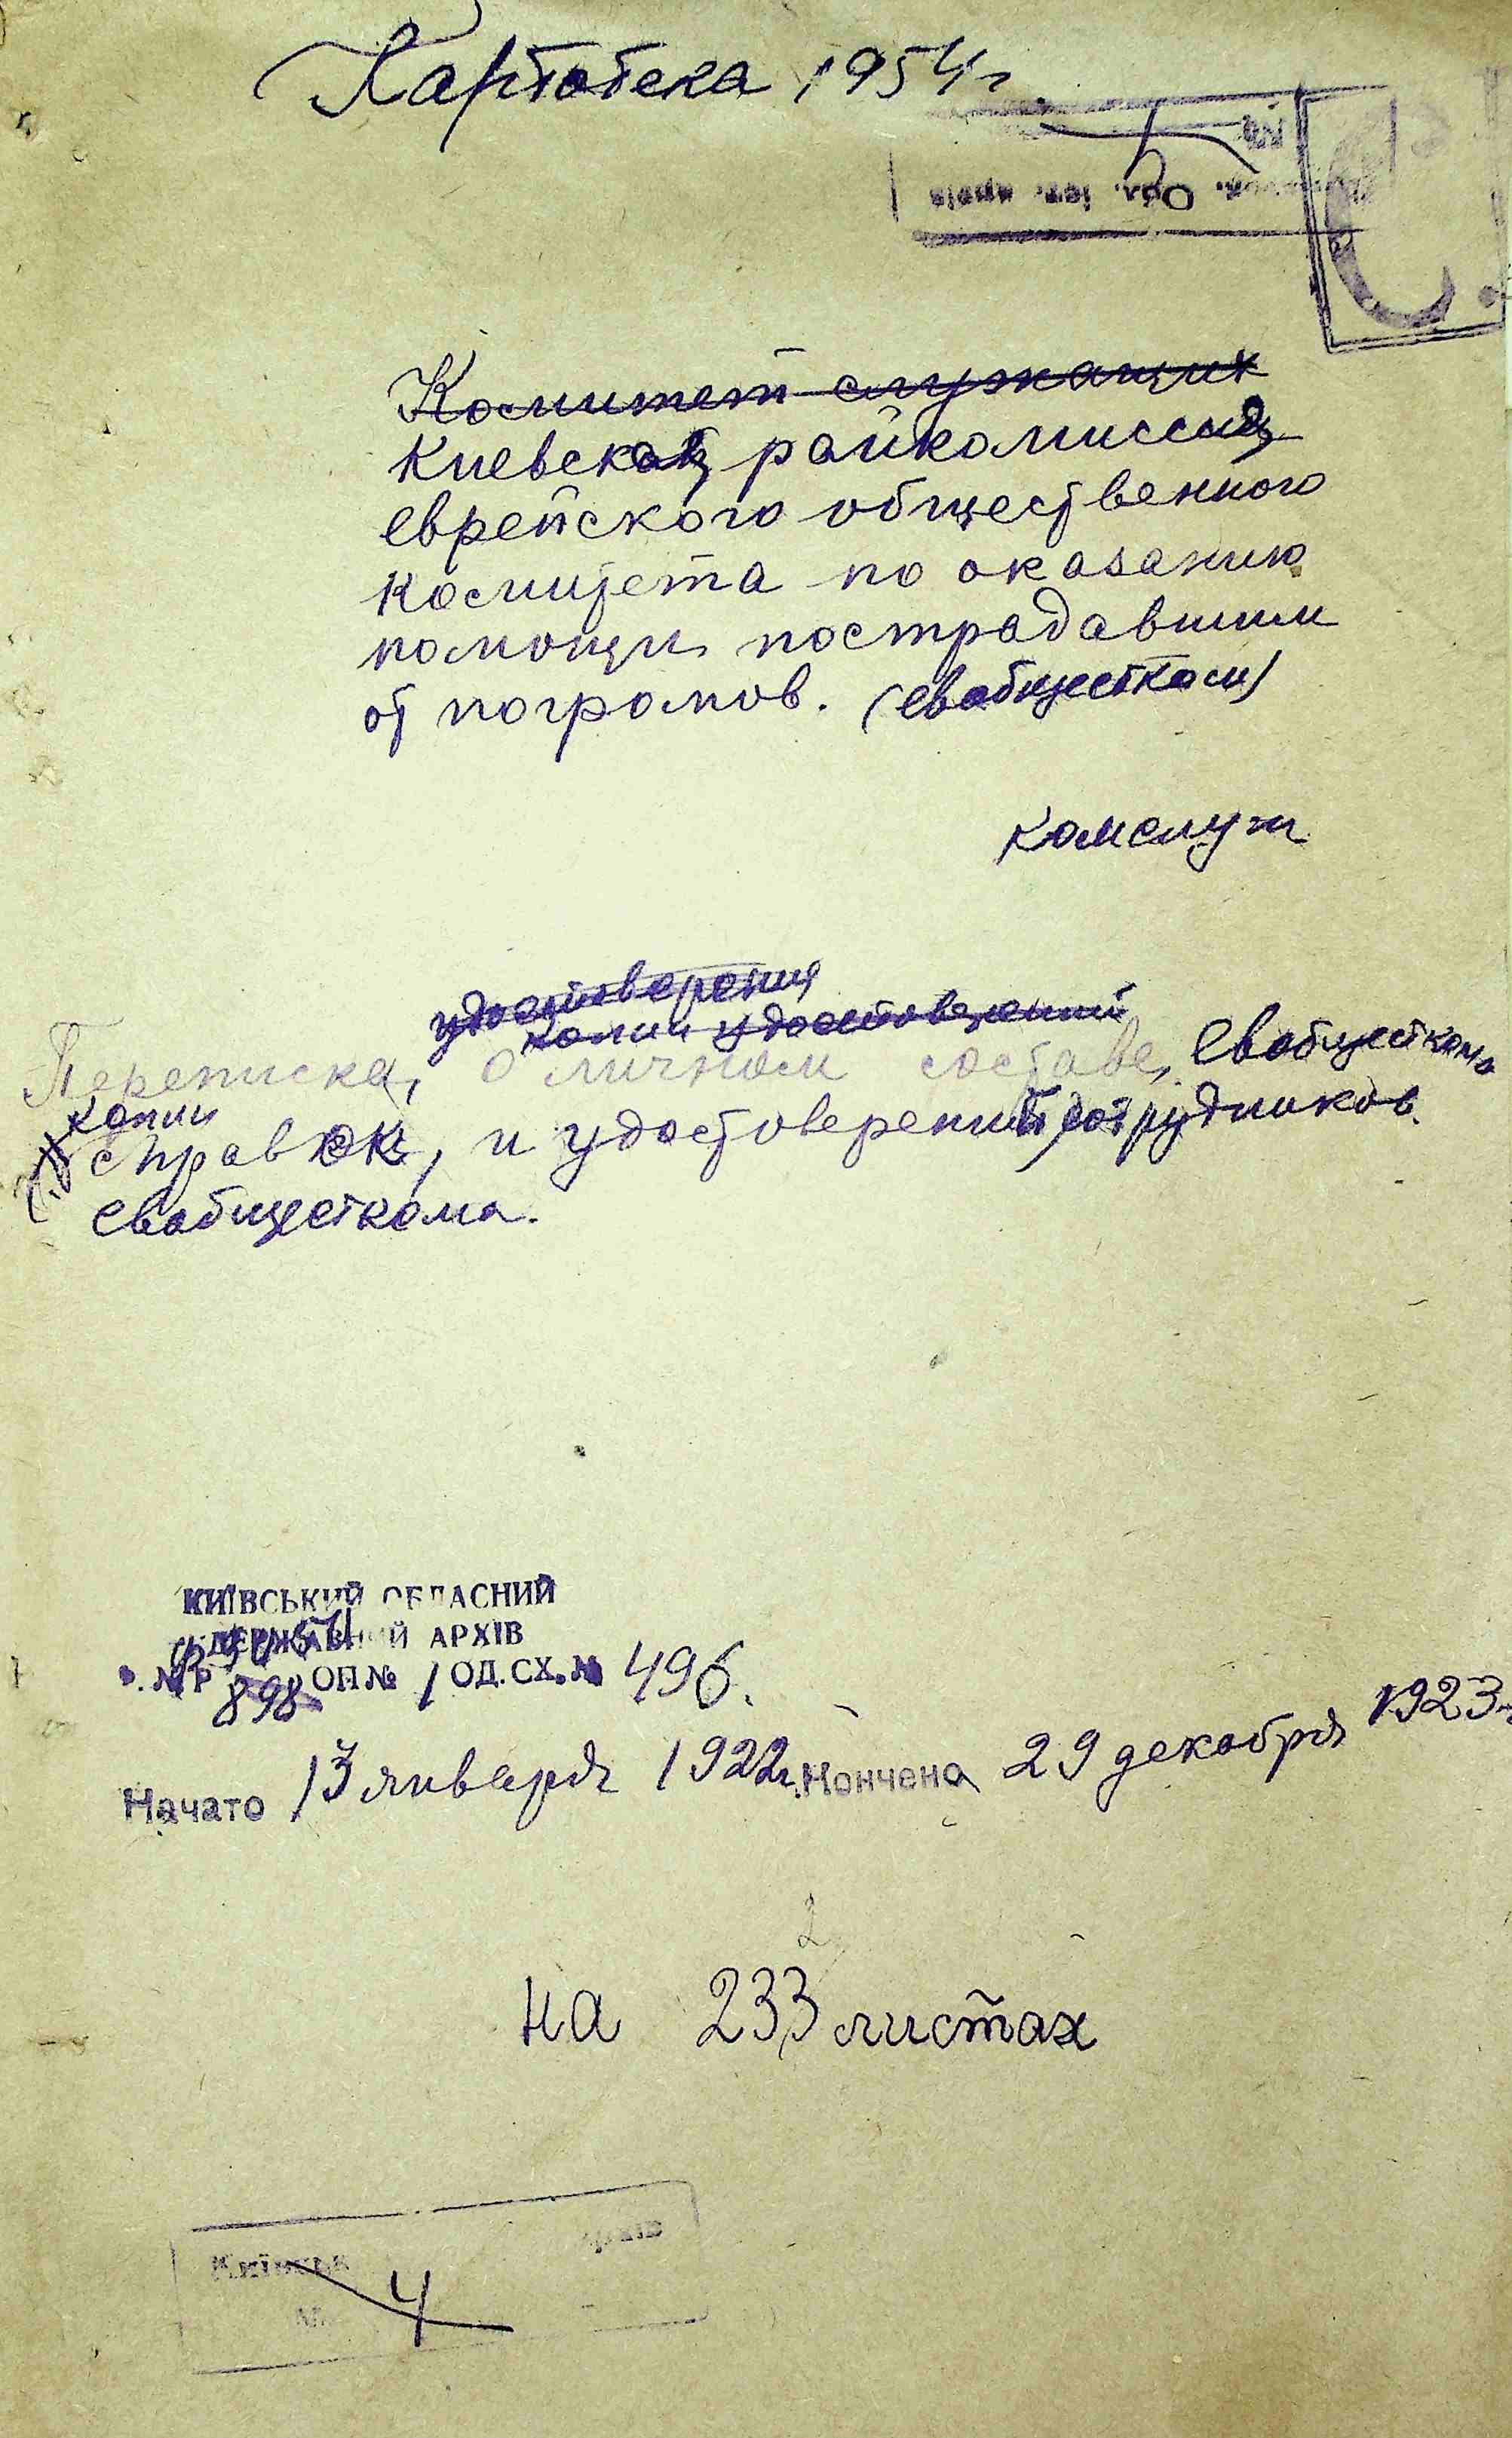 Картотека 1954 г.
№
Обл. іст. архів
Комитет служащих
Киевская райкомиссия
еврейского общественного
комитета по оказанию
помощи пострадавшим
от погромов. (Евобщестком)
комслуж
удостоверения
копии удостоверений
Переписка, о личном составе, Евобщесткома
копии
справок, и удостоверений сотрудников.
Евобщесткома.
КИЇВСЬКИЙ ОБЛАСНИЙ
ДЕРЖАВНИЙ АРХІВ
№ Р 898 ОП № 1 ОД. СХ. № 496.
Начато 13 января 1922 г. Кончено 29 декабря 1923 г.
2
на 233 листах
Київськ архів
№ 4